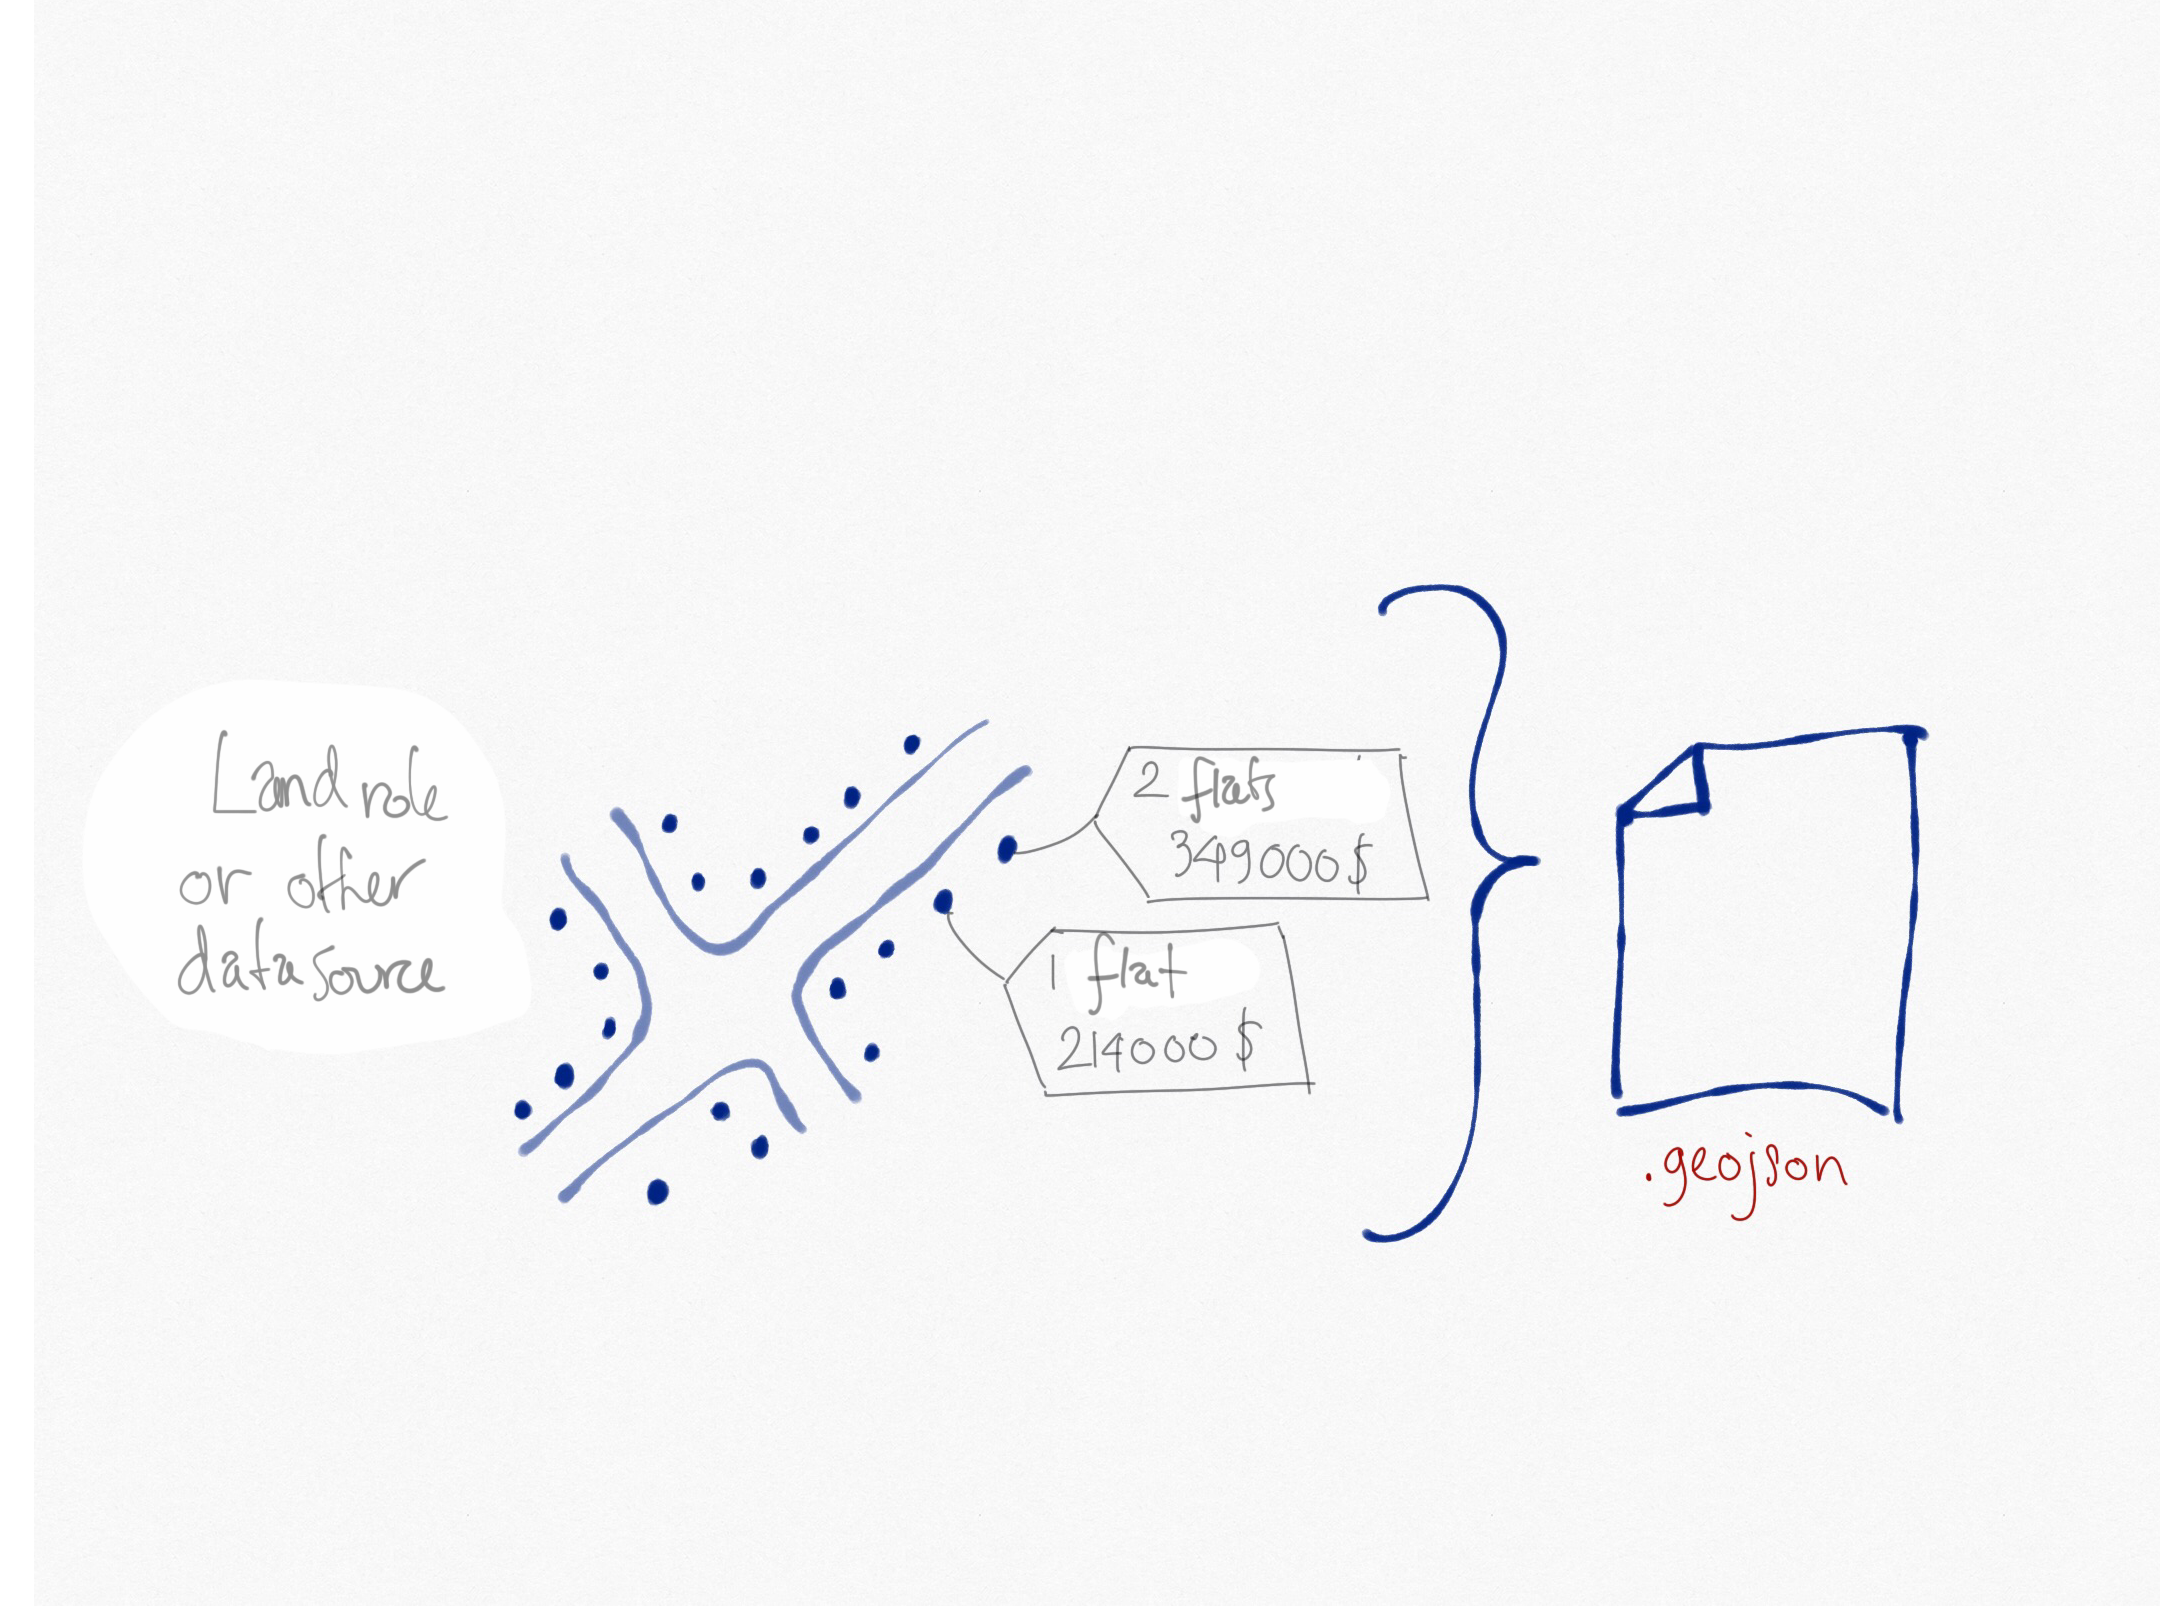 Land role
or other
data source
2 flats
349000 $
1 flat
214000 $
.geojson